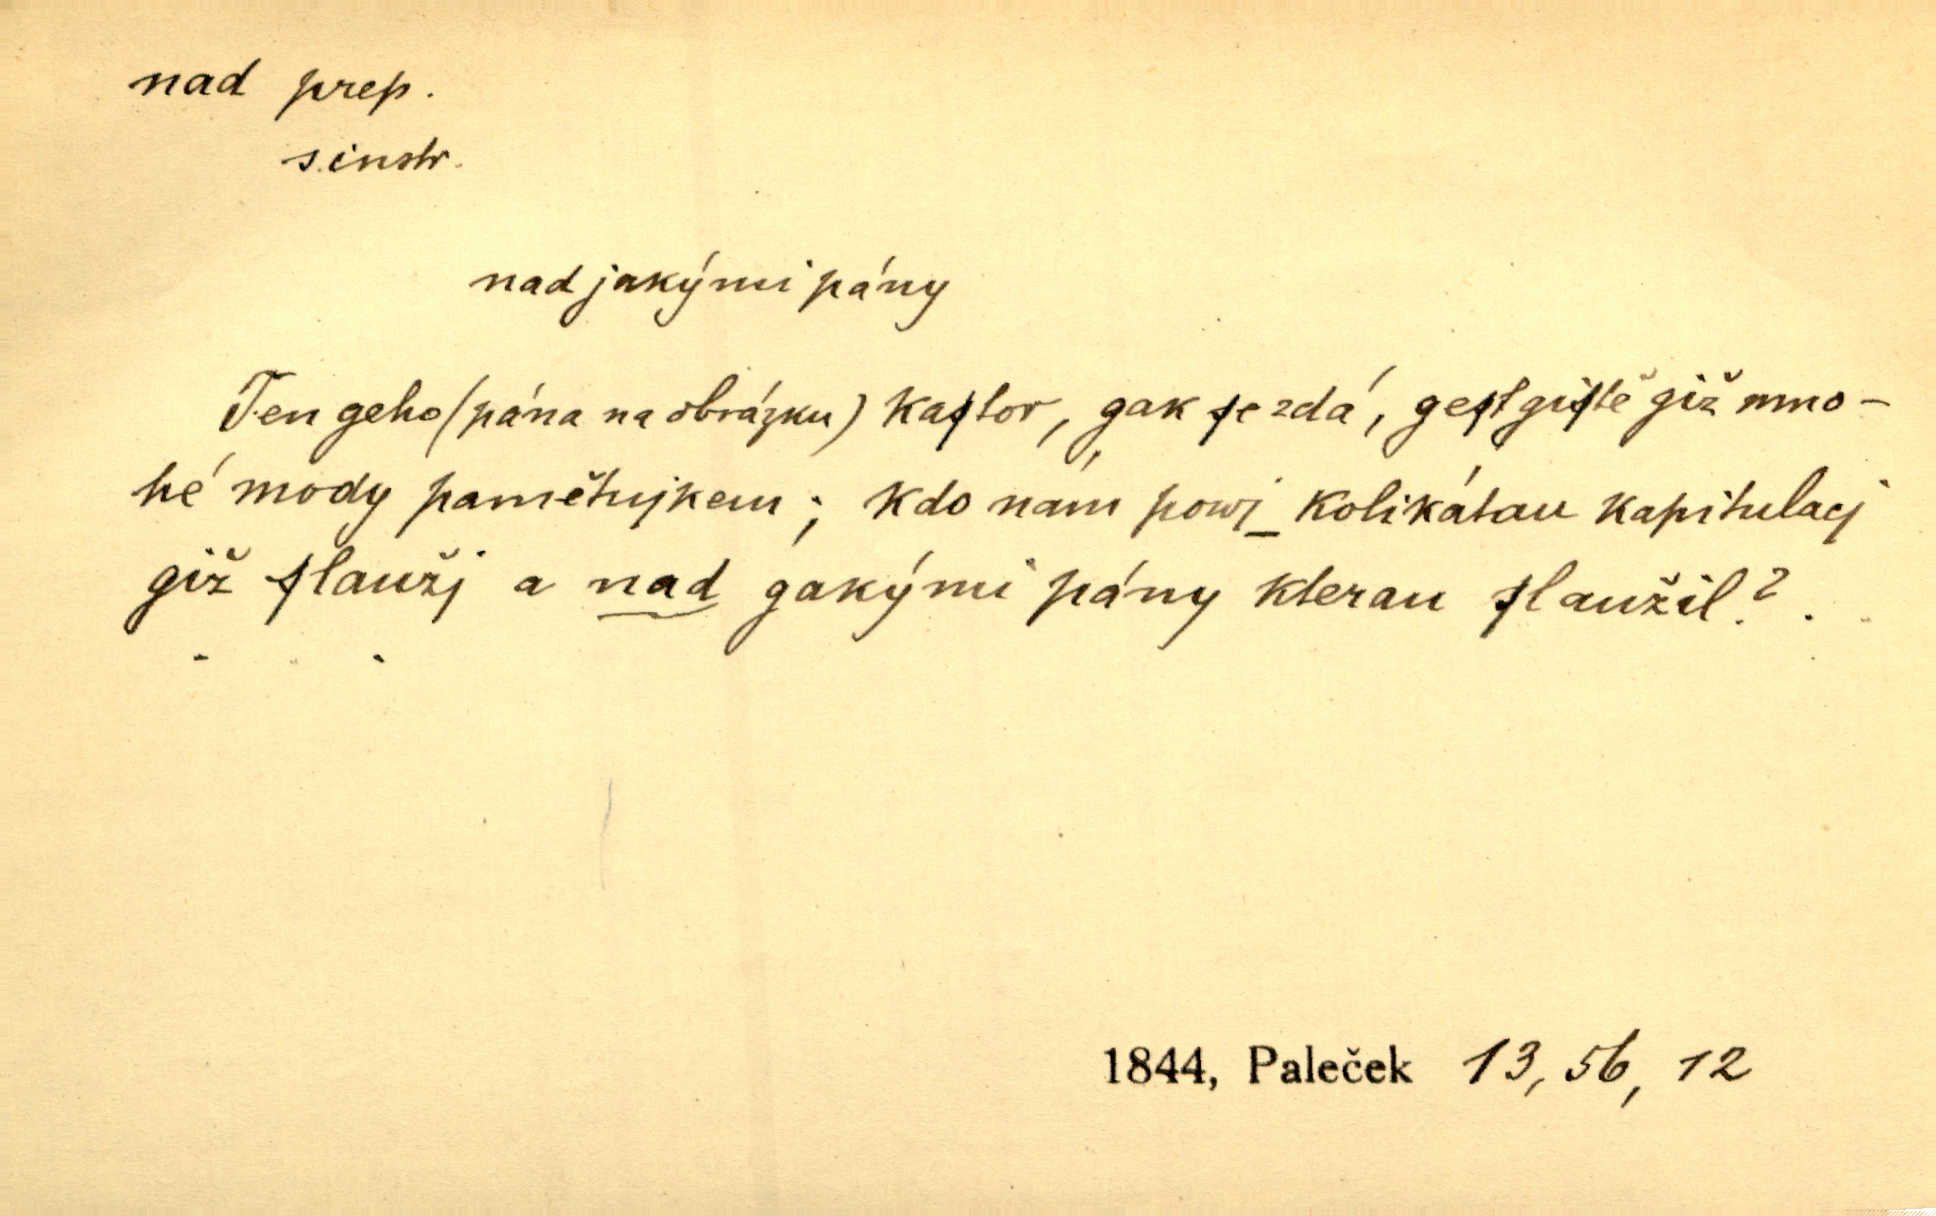 nad prep.
s. instr.
nad jakými pány
Ten geho (pána na obrázku) kaſtor, gak ſe zdá, geſt giſtě giž mno-
hé mody pamětnjkem; kdo nám powj_ kolikátau kapitulacj
giž ſlaužj a nad gakými pány kterau ſlaužil?
1844, Paleček 13, 56, 12